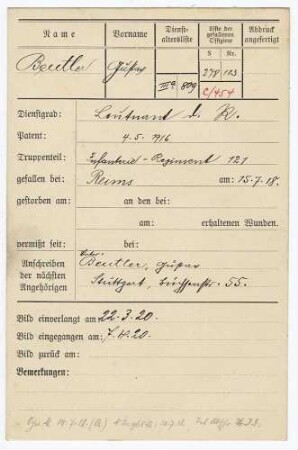 Name Vorname Dienst- altersliste Liste der gefallenen Offiziere S Nr. Abdruck angefertigt
Beutler Gustav IIIa 809 278 123
C/454
Dienstgrad: Leutnant d. R.
Patent: 4.5.1916
Truppenteil: Infanterie-Regiment 121
gefallen bei: Reims am: 15.7.18.
gestorben am: an den bei:
am: erhaltenen Wunden.
vermißt seit: bei:
Anschreiben der nächsten Angehörigen Vater: Beutler, Gustav
Stuttgart, Büchsenstr. 55.
Bild einverlangt am: 22.3.20.
Bild eingegangen am: 7.4.20.
Bild zurück am:
Bemerkungen: